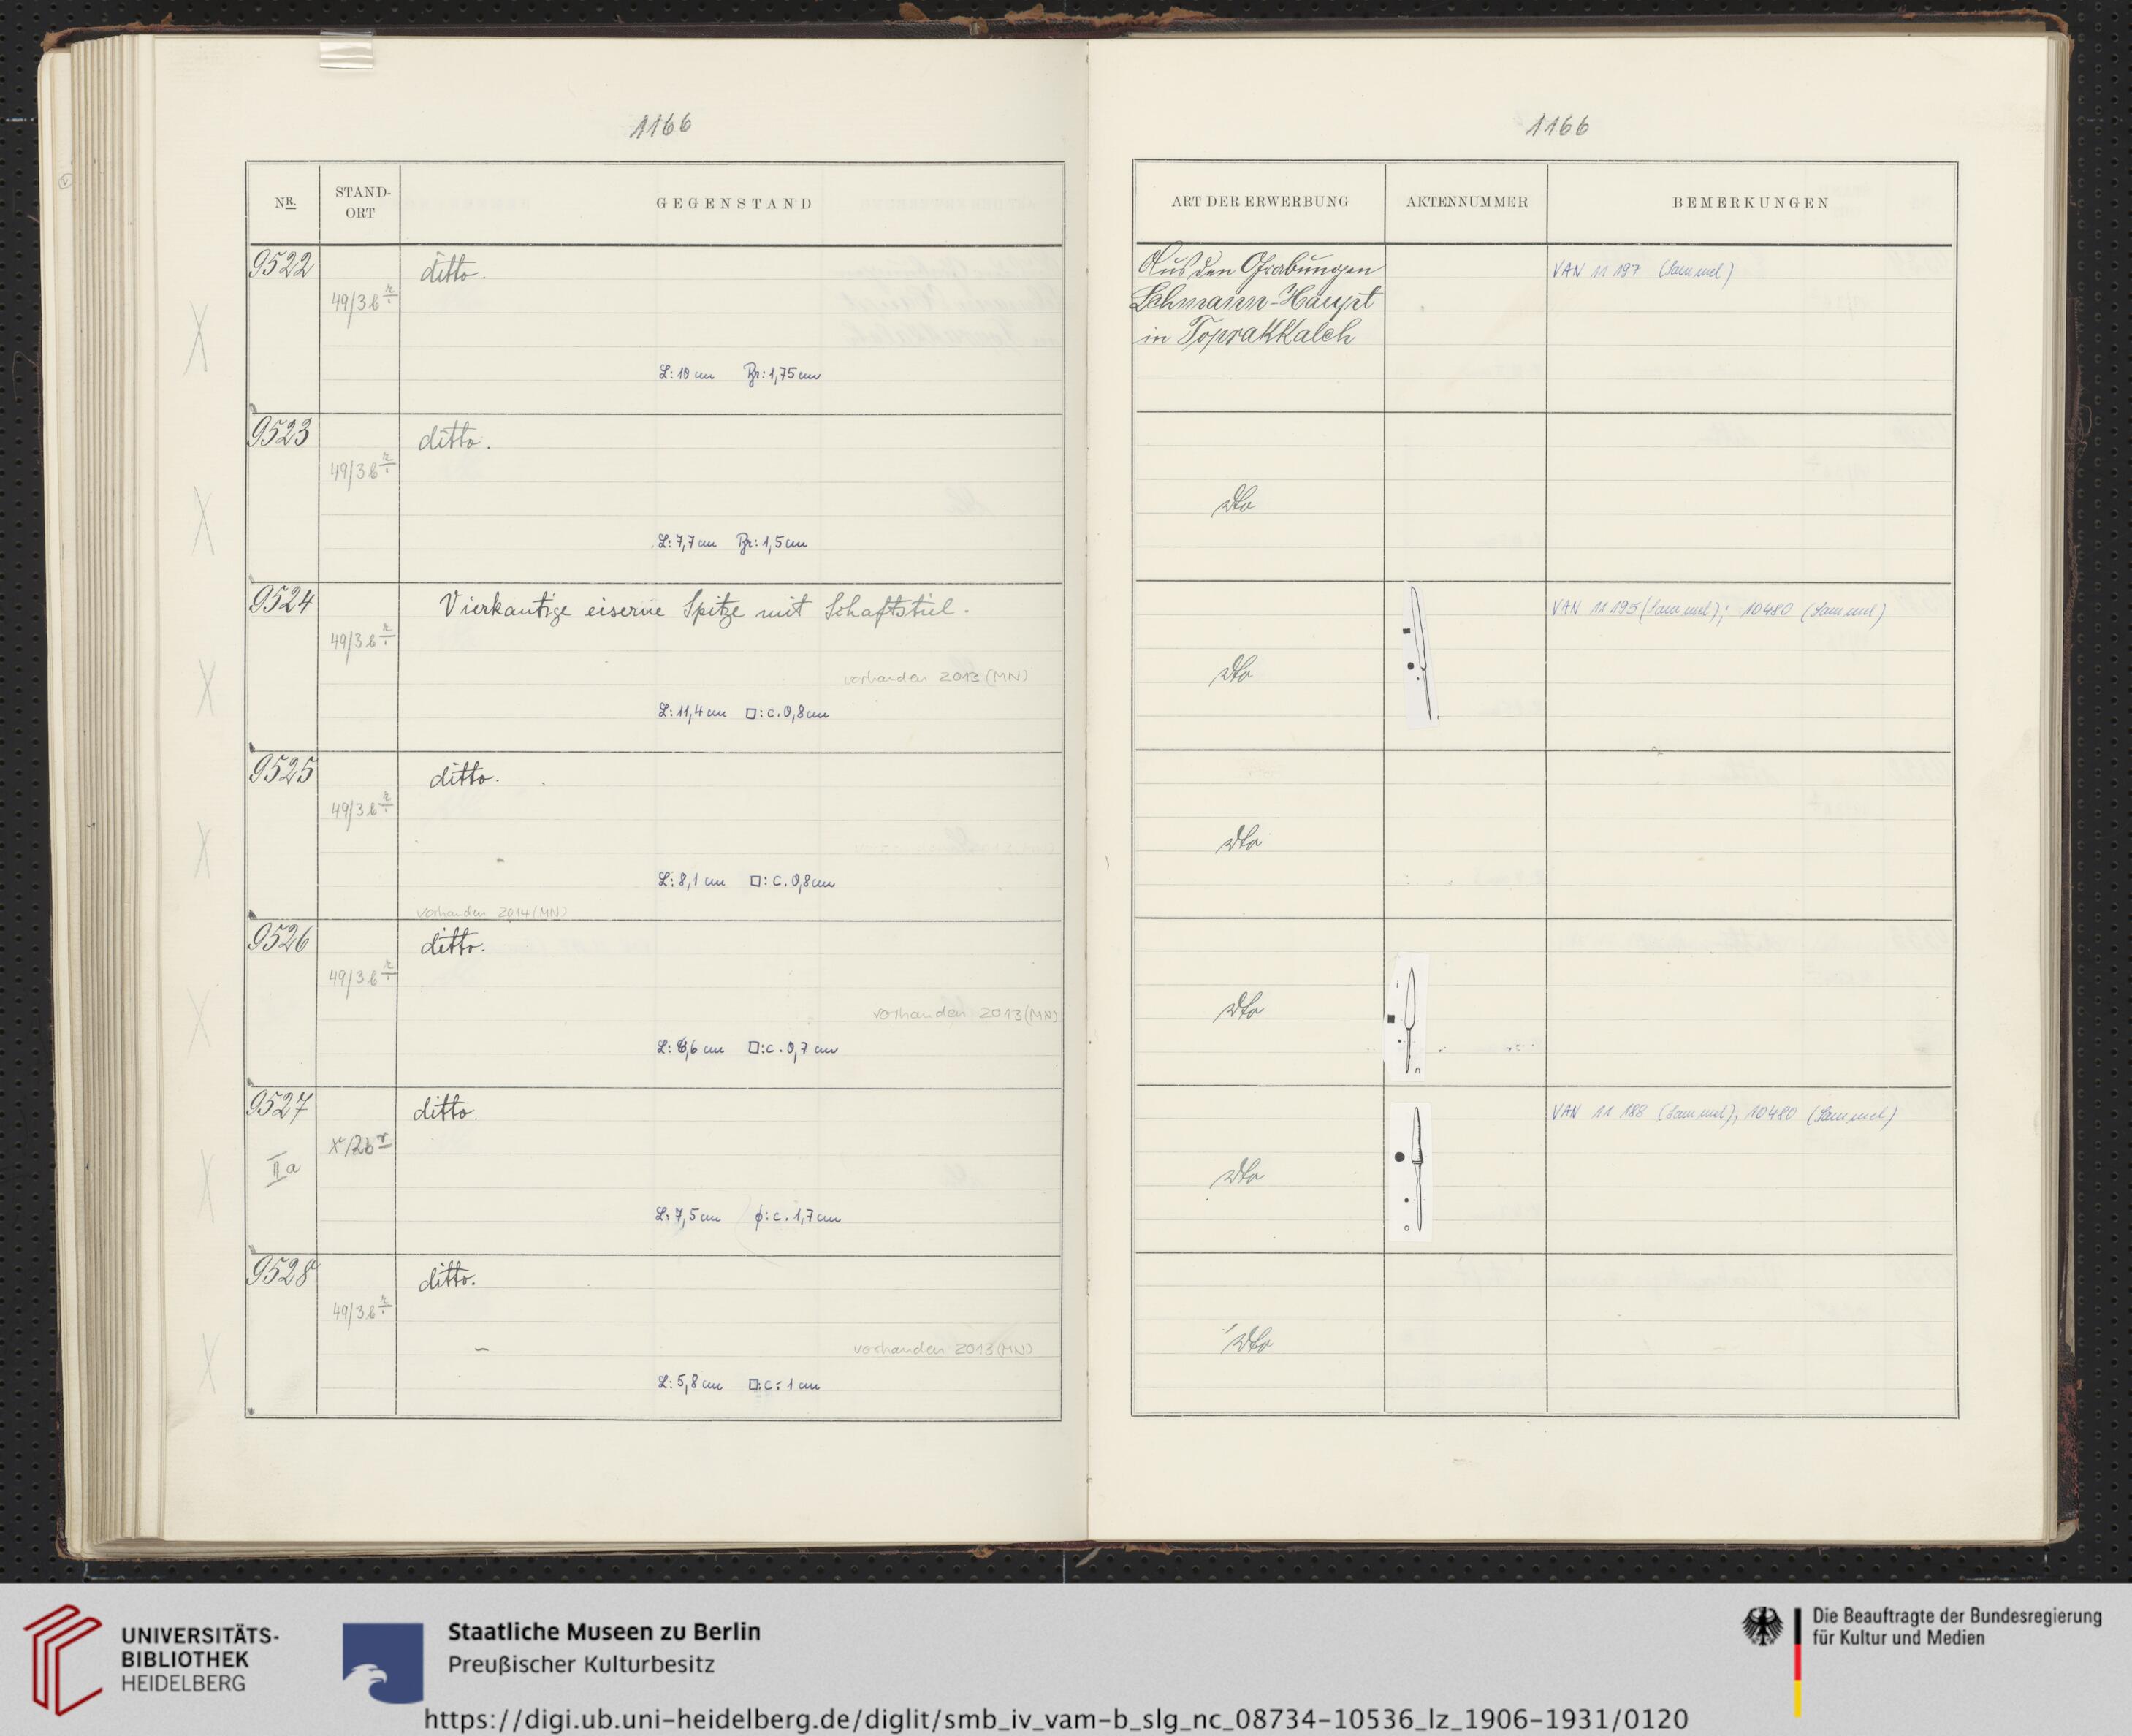 1166
NR.
STAND-
ORT
GEGENSTAND
9522
49/3b
ditto.
L: 10 cm Br: 1,75 cm
9523
49/3b
ditto.
L: 7,7 cm Br: 1,5 cm
9524
49/3b
Vierkantige eiserne Spitze mit Schaftstiel.
vorhanden 2013 (MN)
L: 11,4 cm □: c. 0,8 cm
9525
49/3b
ditto.
L: 8,1 cm □: c. 0,8 cm
vorhanden 2014 (MN)
9526
49/3b
ditto.
vorhanden 2013 (MN)
L: 6,6 cm □: c. 0,7 cm
9527
ditto.
IIa
L: 7,5 cm ϕ: c. 1,7 cm
9528
49/3b
ditto.
vorhanden 2013 (MN)
L: 5,8 cm □: c: 1 cm
1166
ART DER ERWERBUNG
AKTENNUMMER
BEMERKUNGEN
Aus den Grabungen
Lehmann-Haupt
in Toprakkaleh
VAN 11 197 (Sammel)
dto
VAN 11 195 (Sammel); 10480 (Sammel)
dto
dto
dto
VAN 11 188 (Sammel), 10480 (Sammel)
dto
dto
UNIVERSITÄTS-
BIBLIOTHEK
HEIDELBERG
Staatliche Museen zu Berlin
Preußischer Kulturbesitz
Die Beauftragte der Bundesregierung
für Kultur und Medien
https://digi.ub.uni-heidelberg.de/diglit/smb_iv_vam-b_slg_nc_08734-10536_lz_1906-1931/0120